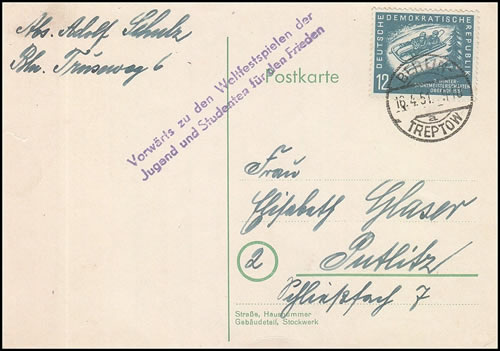 Abs. Adolf Schulz
Bln. Trusoweg 6
Vorwärts zu den Weltfestspielen der
Jugend und Studenten für den Frieden
Postkarte
DEUTSCHE DEMOKRATISCHE REPUBLIK
12
BERLIN
16.4.51
a
TREPTOW
Frau
Elisabeth Glaser
2
Putlitz
Schließfach 7
Straße, Hausnummer
Gebäudeteil, Stockwerk